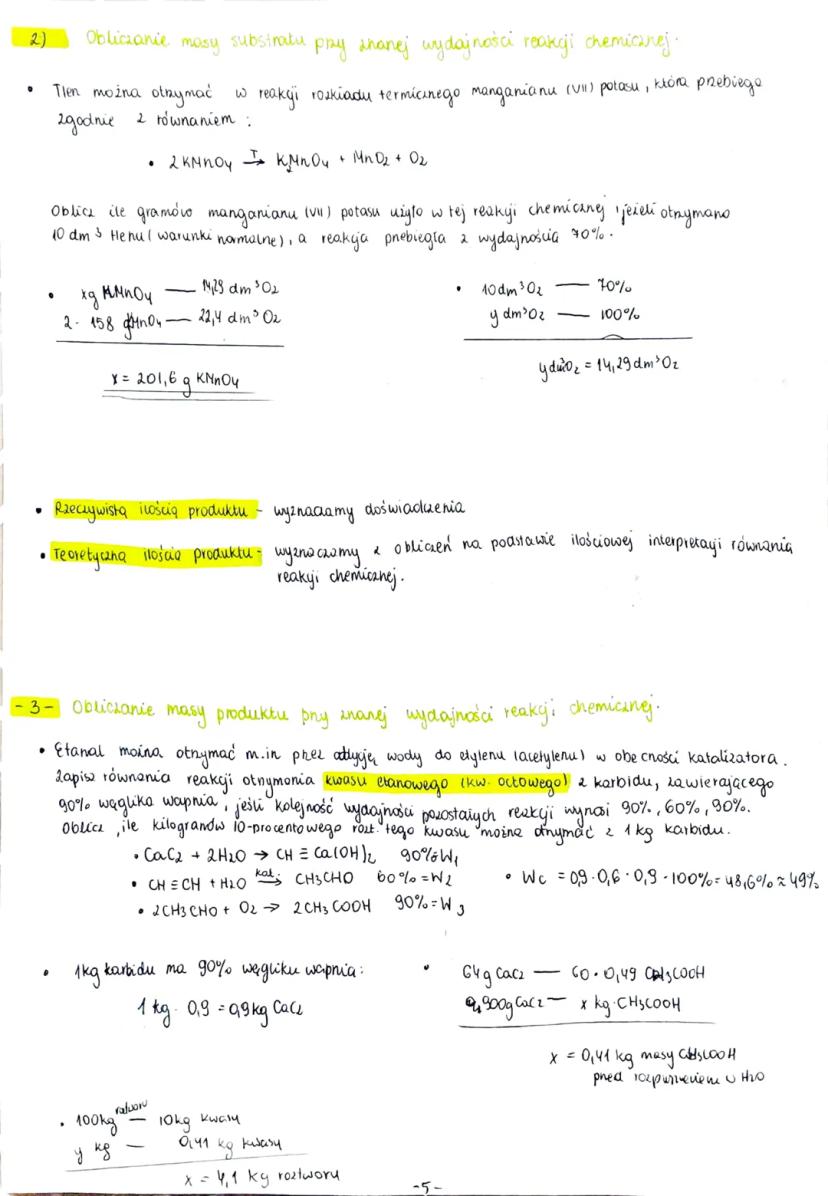 2) Obliczanie masy substratu przy znanej wydajności reakcji chemicznej.
• Tlen można otrzymać w reakcji rozkładu termicznego manganianu (VII) potasu, która przebiega
zgodnie z równaniem:
• 2KMnO4 T→ K2MnO4 + MnO2 + O2
Oblicz ile gramów manganianu (VII) potasu użyto w tej reakcji chemicznej, jeżeli otrzymano
10 dm³ tlenu (warunki normalne), a reakcja przebiegła z wydajnością 70%.
• xg KMnO4 — 14,29 dm³O2
2 · 158 gMnO4 — 22,4 dm³ O2
x = 201,6 g KMnO4
• 10dm³O2 — 70%
y dm³O2 — 100%
ydm³O2 = 14,29dm³O2
• Rzeczywistą ilością produktu - wyznaczamy doświadczenia
• Teoretyczną ilością produktu - wyznaczamy z obliczeń na podstawie ilościowej interpretacji równania
reakcji chemicznej.
- 3 - Obliczanie masy produktu przy znanej wydajności reakcji chemicznej.
• Etanal można otrzymać m.in przez addycję wody do etylenu (acetylenu) w obecności katalizatora.
Zapisz równania reakcji otrzymania kwasu etanowego (kw. octowego) z karbidu, zawierającego
90% węglika wapnia, jeśli kolejność wydajności pozostałych reakcji wynosi 90%, 60%, 90%.
Oblicz, ile kilogramów 10-procentowego rozt. tego kwasu można otrzymać z 1kg karbidu.
• CaC2 + 2H2O → CH ≡ Ca(OH)2 90%=W1
• CH ≡ CH + H2O kat.→ CH3CHO 60%=W2
• 2CH3CHO + O2 → 2CH3COOH 90%=W3
• Wc = 0,9 · 0,6 · 0,9 · 100% = 48,6% ≈ 49%
• 1kg karbidu ma 90% węgliku wapnia:
1 kg · 0,9 = 0,9kg CaC2
• 64g CaC2 — 60 · 0,49 CH3COOH
900g CaC2 — x kg · CH3COOH
x = 0,41 kg masy CH3COOH
przed rozpuszczeniem w H2O
• 100kg roztworu — 10kg kwasu
y kg — 0,41 kg kwasu
x = 4,1 kg roztworu
-5-